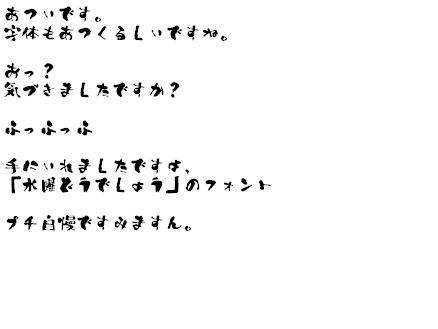 あついです。
字体もあつくるしいですね。
おっ？
気づきましたですか？
ふっふっふ
手にいれましたですよ、
「水曜どうでしょう」のフォント
プチ自慢ですみません。